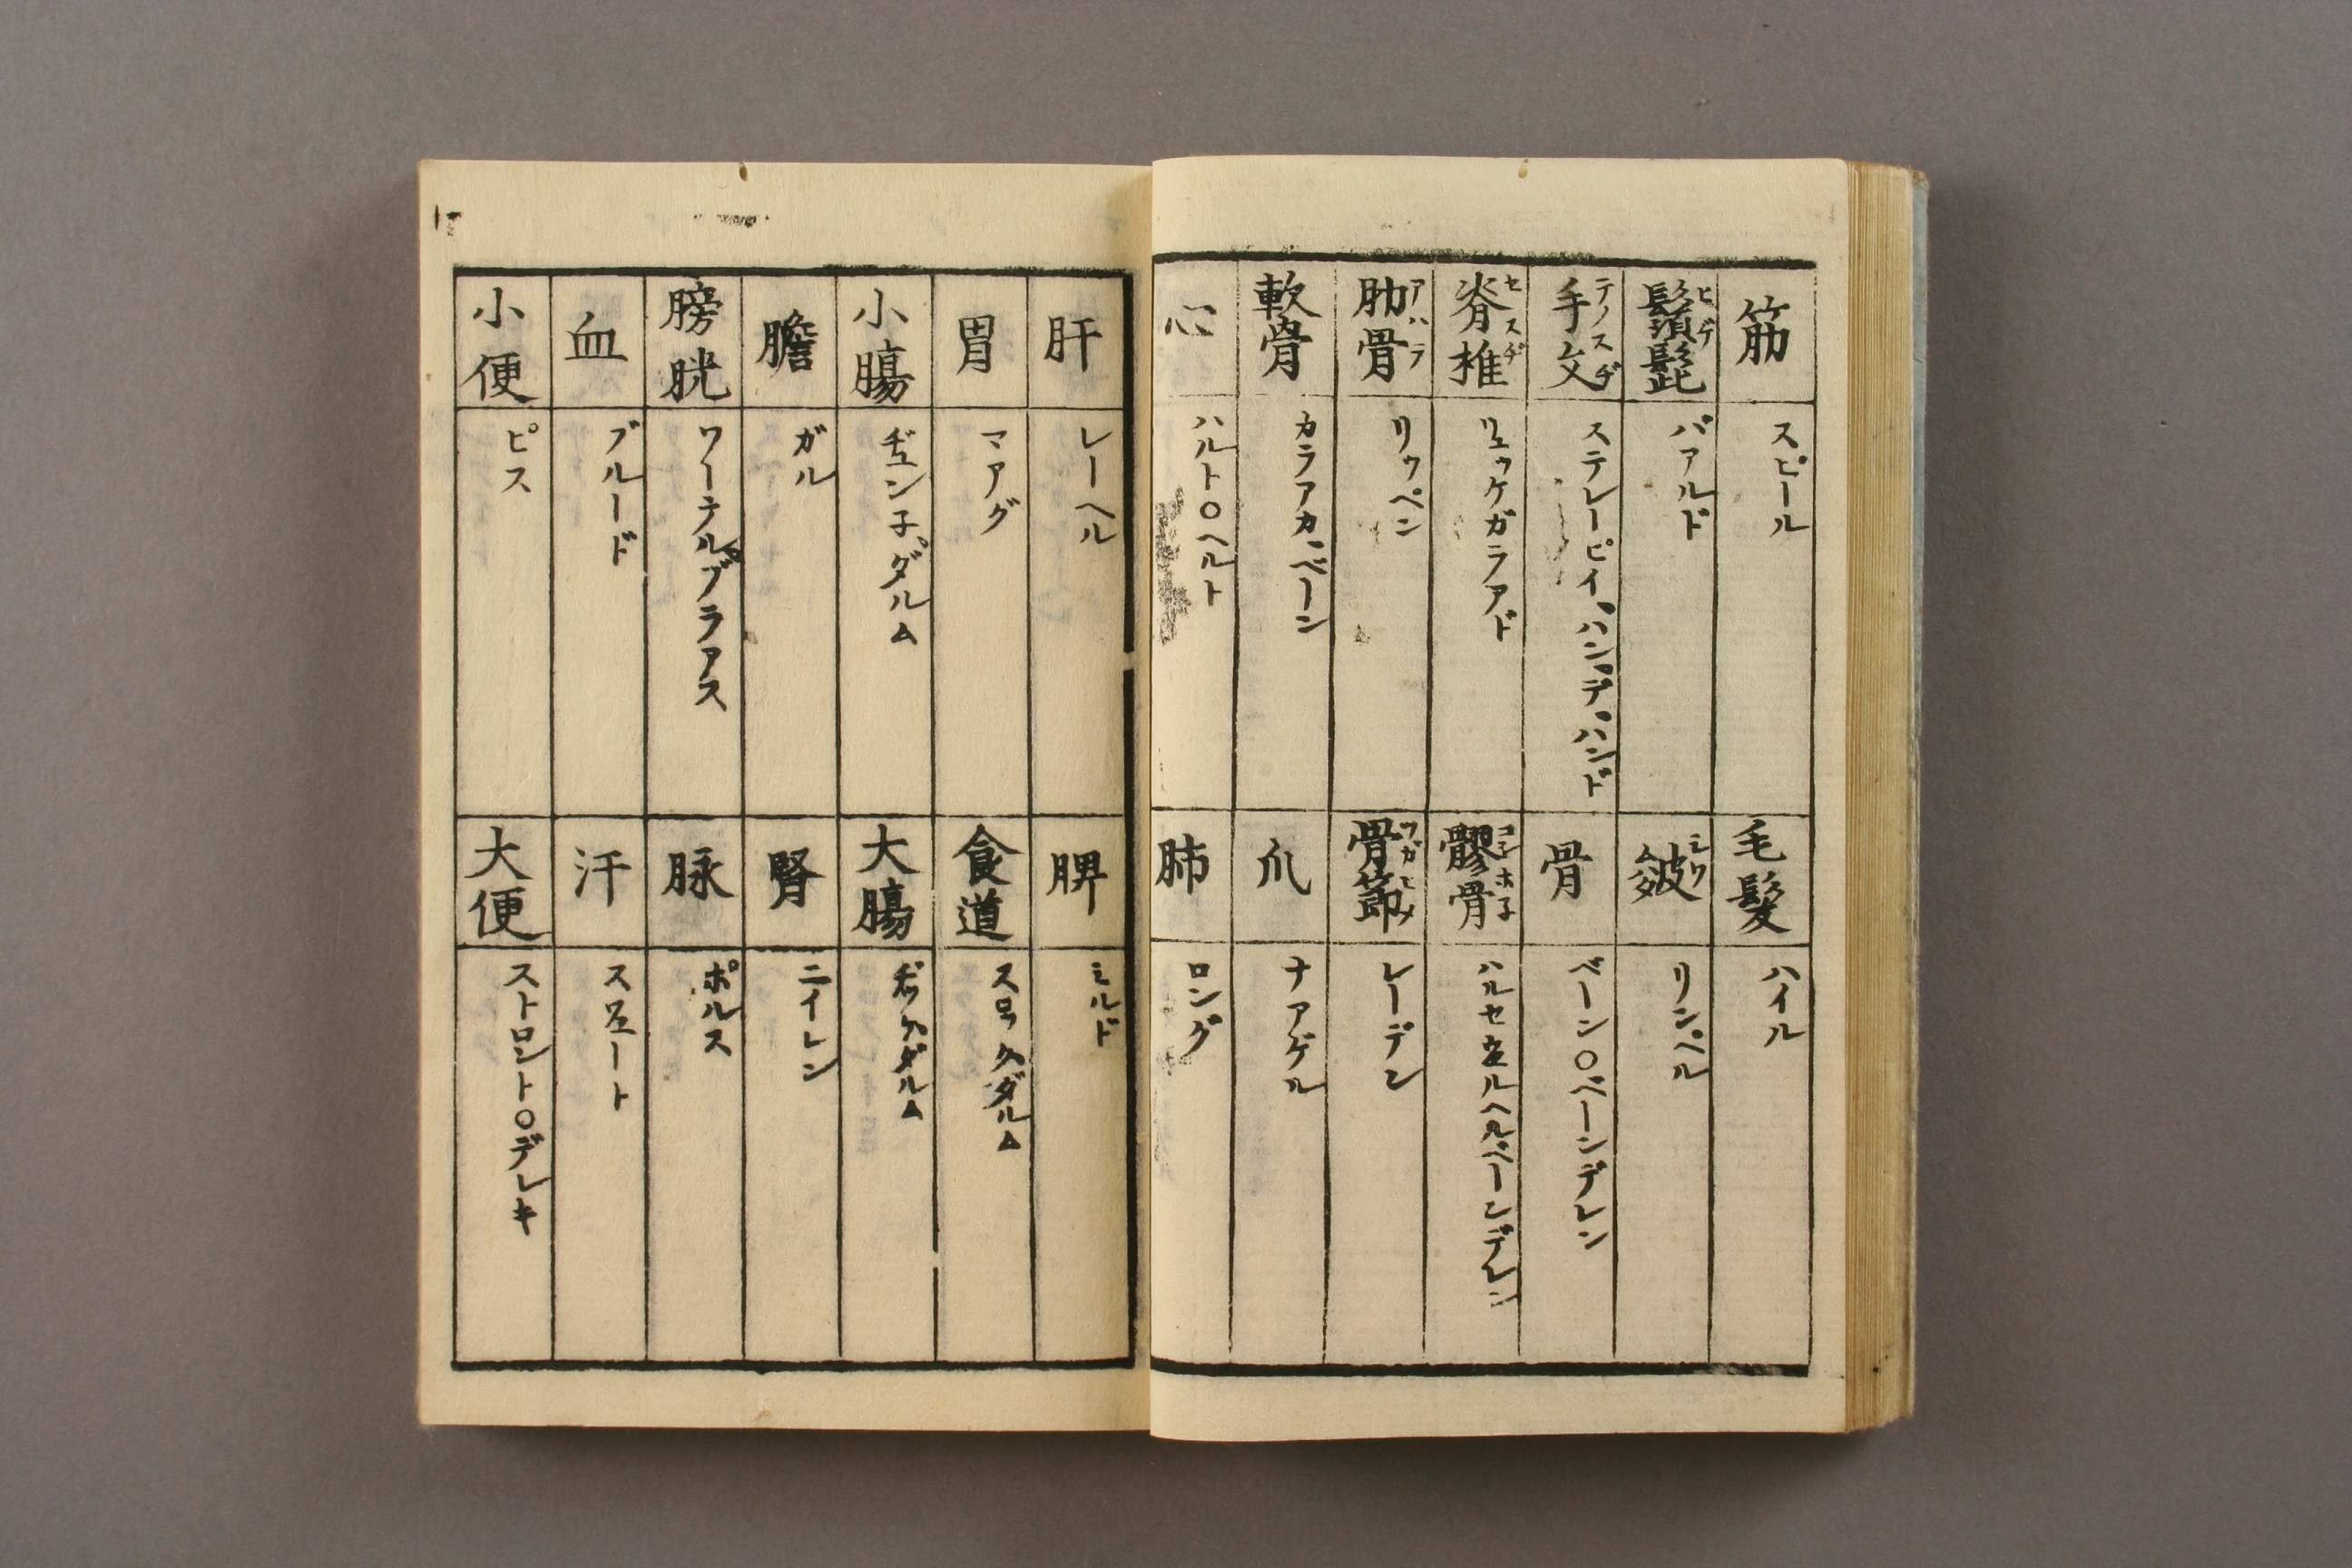 筋 スピール
毛髪 ハイル
鬚髭 ヒゲ バアルド
皺 シワ リンペル
手文 テノスヂ ステレーピイ、ハン、デ、ハンド
骨 ベーン〇ベーンデレン
脊椎 セスヂ リュッケガラアド
髎骨 コシホ子
肋骨 アハラ リッペン
骨節 ツガヒメ レーデン
軟骨 カラアカ、ベーン
爪 ナアゲル
心 ハルト〇ヘルト
肺 ロング
肝 レーヘル
脾 ミルド
胃 マアグ
食道 スロックダルム
小腸 ヂュン子、ダルム
大腸 ヂッケダルム
膽 ガル
腎 ニイレン
膀胱 ワーテル、ブラアス
脉 ポルス
血 ブルード
汗 スウェート
小便 ピス
大便 ストロント〇デレキ